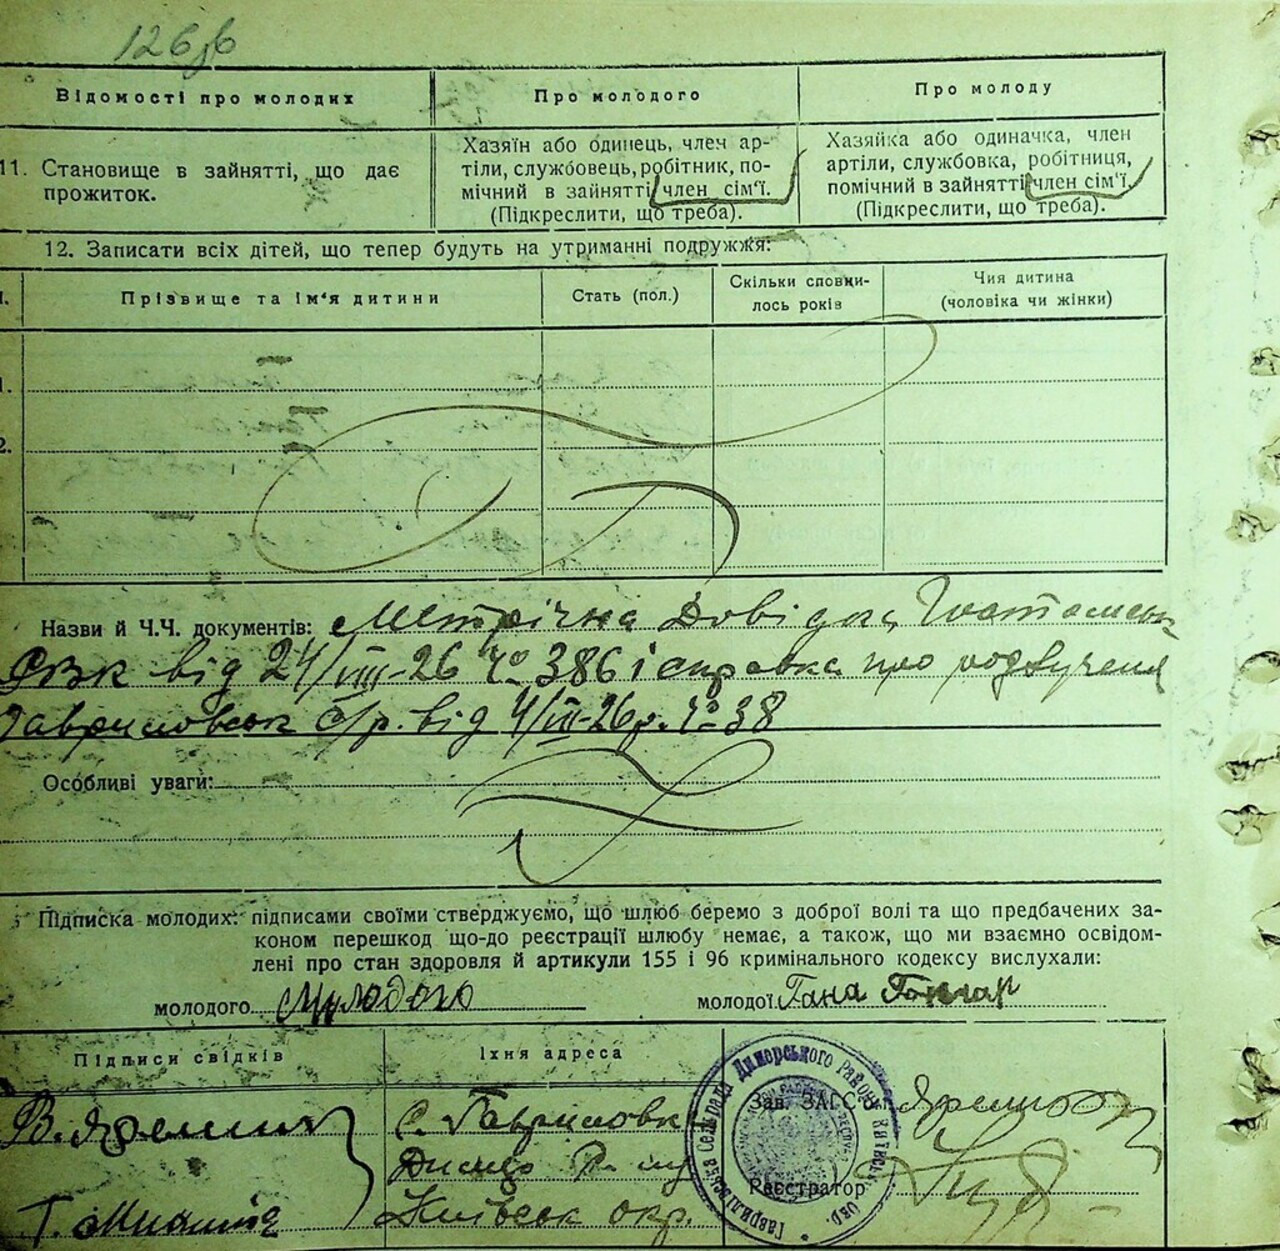 126зв
Відомості про молодих
Про молодого
Про молоду
11. Становище в зайнятті, що дає
прожиток.
Хазяїн або одинець, член ар-
тіли, службовець, робітник, по-
мічний в зайнятті, член сім'ї.
(Підкреслити, що треба).
Хазяйка або одиначка, член
артіли, службовка, робітниця,
помічний в зайнятті, член сім'ї.
(Підкреслити, що треба).
12. Записати всіх дітей, що тепер будуть на утриманні подружжя:
Прізвище та ім'я дитини
Стать (пол.)
Скільки сповни-
лось років
Чия дитина
(чоловіка чи жінки)
1.
2.
Назви й Ч.Ч. документів: Метрічна Довідка
РВК від 24/VIII-26 Ч° 386 і справка про
Гавриловськ с/р. від 4/III-26 р. Ч° 38
Особливі уваги:
Підписка молодих: підписами своїми стверджуємо, що шлюб беремо з доброї волі та що предбачених за-
коном перешкод що-до реєстрації шлюбу немає, а також, що ми взаємно освідом-
лені про стан здоровля й артикули 155 і 96 кримінального кодексу вислухали:
молодого
молодої Гана Гончар
Підписи свідків
Їхня адреса
В.
с. Гавриловка
Київськ окр.
Г.
Зав. ЗАГС'ом
Реєстратор
Гаврилівська Сельрада Димерського Району Київськ. Окр.